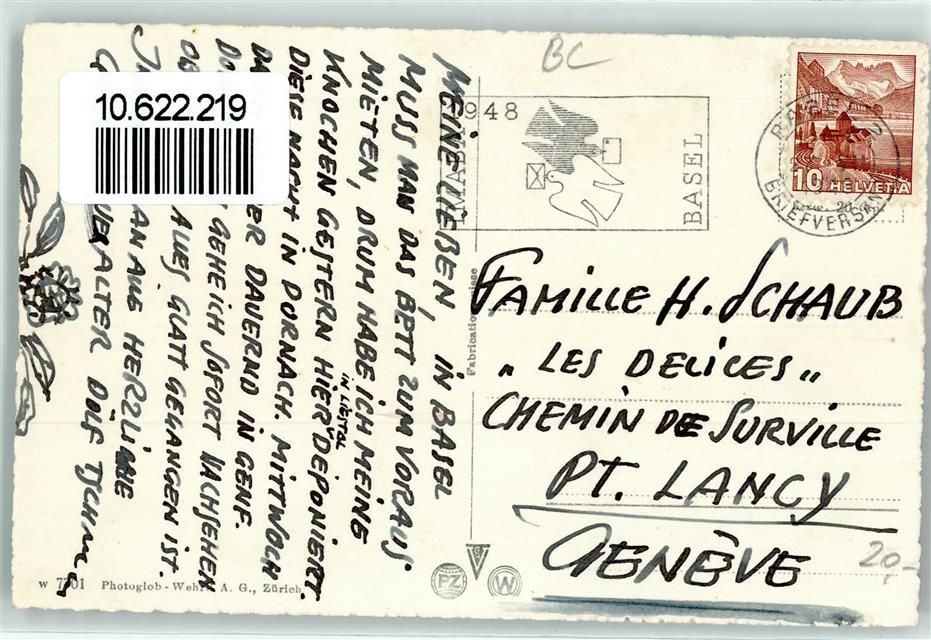 BC
10.622.219
1948
BASEL
BRIEFVERSAND
10 HELVETIA
MEINE LIEBEN, IN BASEL
MUSS MAN DAS BETT ZUM VORAUS
MIETEN, DRUM HABE ICH MEINE
KNOCHEN GESTERN HIER DEPONIERT.
IN LIESTAL
DIESE NACHT IN DORNACH. MITTWOCH
DAUERND IN GENF.
GEHE ICH SOFORT NACHSEHEN
ALLES GLATT GEGANGEN IST.
AN AUS HERZLICHE
ALTER DÖLF
FAMILLE H. SCHAUB
„ LES DELICES „
CHEMIN DE SURVILLE
PT. LANCY
GENÈVE
20,-
w 7701 Photoglob-Wehrli A. G., Zürich
PZ
W